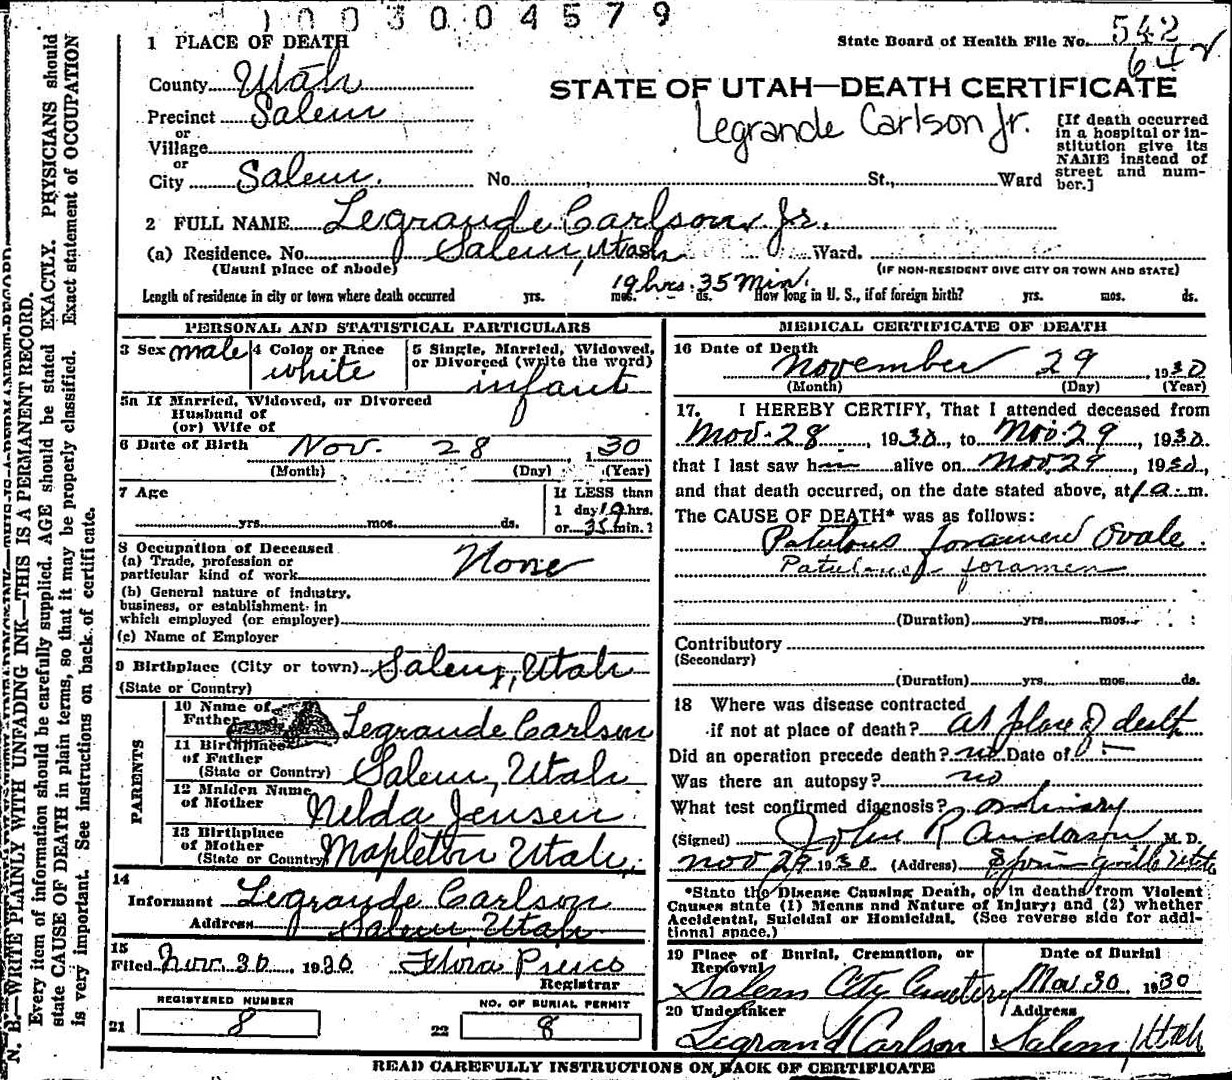 1003004579
1 PLACE OF DEATH
State Board of Health File No. 542
642
County Utah
STATE OF UTAH—DEATH CERTIFICATE
Precinct Salem
Legrande Carlson Jr.
[If death occurred in a hospital or institution give its NAME instead of street and number.]
or
Village
or
City Salem. No. St., Ward
2 FULL NAME Legrande Carlson Jr.
(a) Residence. No. Salem, Utah Ward.
(Usual place of abode)
(IF NON-RESIDENT GIVE CITY OR TOWN AND STATE)
19 hrs. 35 Min.
Length of residence in city or town where death occurred yrs. mos. ds. How long in U. S., if of foreign birth? yrs. mos. ds.
PERSONAL AND STATISTICAL PARTICULARS
3 Sex male
4 Color or Race white
5 Single, Married, Widowed, or Divorced (write the word)
infant
5a If Married, Widowed, or Divorced
Husband of
(or) Wife of
6 Date of Birth Nov. 28, 1 30
(Month) (Day) (Year)
7 Age
If LESS than
1 day 19 hrs.
yrs. mos. ds. or 35 min.?
8 Occupation of Deceased
(a) Trade, profession or
particular kind of work None
(b) General nature of industry,
business, or establishment in
which employed (or employer)
(c) Name of Employer
9 Birthplace (City or town) Salem, Utah
(State or Country)
PARENTS
10 Name of
Father Legrande Carlson
11 Birthplace
of Father
(State or Country) Salem, Utah
12 Maiden Name
of Mother Nelda Jensen
13 Birthplace
of Mother
(State or Country) Mapleton Utah,
14
Informant Legrande Carlson
Address Salem, Utah
15
Filed Nov. 30, 1930 Flora
Registrar
REGISTERED NUMBER
21 8
NO. OF BURIAL PERMIT
22 8
MEDICAL CERTIFICATE OF DEATH
16 Date of Death November 29, 1930
(Month) (Day) (Year)
17. I HEREBY CERTIFY, That I attended deceased from
Nov. 28, 1930, to Nov. 29, 1930
that I last saw h alive on Nov. 29, 1930,
and that death occurred, on the date stated above, at 1 a. m.
The CAUSE OF DEATH* was as follows:
Patulous foramen Ovale.
Patulous foramen
(Duration) yrs. mos.
Contributory
(Secondary)
(Duration) yrs. mos. ds.
18 Where was disease contracted
if not at place of death? at place of death
Did an operation precede death? no Date of
Was there an autopsy? no
What test confirmed diagnosis? ordinary
(Signed) John R Anderson M. D.
Nov 29 1930 (Address) Springville Utah
*State the Disease Causing Death, or in deaths from Violent
Causes state (1) Means and Nature of Injury; and (2) whether
Accidental, Suicidal or Homicidal. (See reverse side for addi-
tional space.)
19 Place of Burial, Cremation, or
Removal
Salem City Cemetery
Date of Burial
Nov 30 1930
20 Undertaker
Legrand Carlson
Address
Salem, Utah
READ CAREFULLY INSTRUCTIONS ON BACK OF CERTIFICATE
N. B.—WRITE PLAINLY WITH UNFADING INK—THIS IS A PERMANENT RECORD.
Every item of information should be carefully supplied. AGE should be stated EXACTLY. PHYSICIANS should
state CAUSE OF DEATH in plain terms, so that it may be properly classified. Exact statement of OCCUPATION
is very important. See instructions on back of certificate.